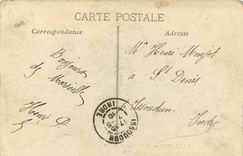 CARTE POSTALE
Correspondance
Adresse
Bonjour
de Marseille
Henri D
Mr Henri
à St Denis
Issoudun
Indre
ISSOUDUN
INDRE